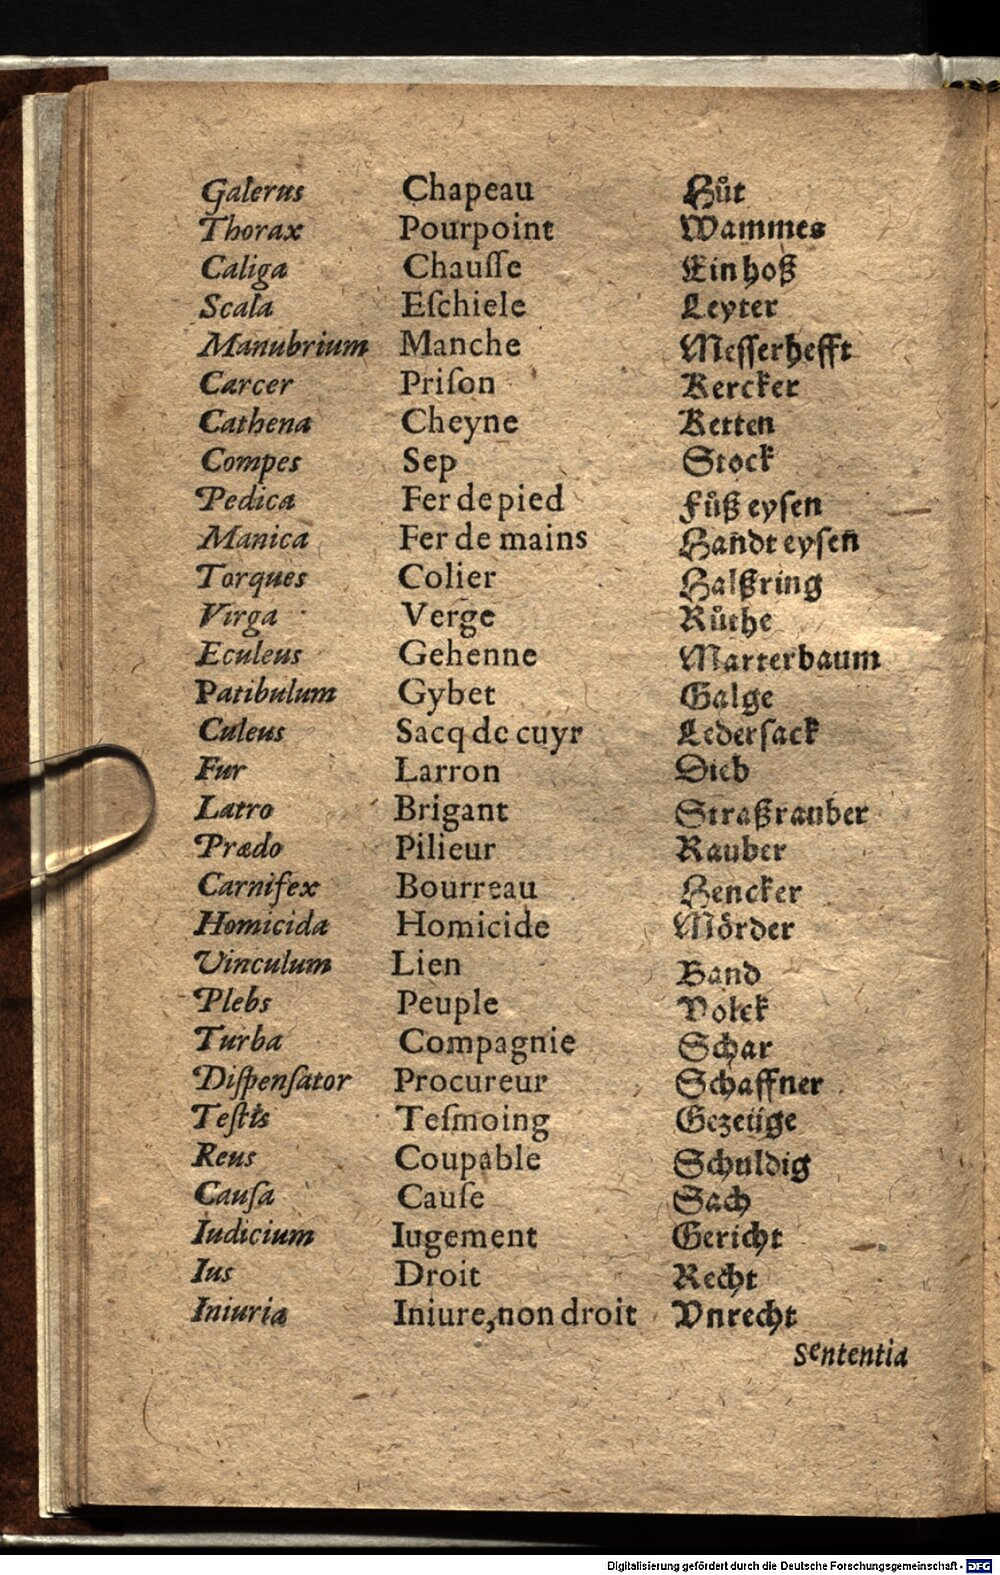 Galerus Chapeau Hůt
Thorax Pourpoint Wammes
Caliga Chauſſe Ein hoß
Scala Eſchiele Leyter
Manubrium Manche Meſſerhefft
Carcer Priſon Kercker
Cathena Cheyne Ketten
Compes Sep Stock
Pedica Fer de pied Fůß eyſen
Manica Fer de mains Handt eyſen
Torques Colier Halßring
Virga Verge Růthe
Eculeus Gehenne Marterbaum
Patibulum Gybet Galge
Culeus Sacq de cuyr Lederſack
Fur Larron Dieb
Latro Brigant Straßrauber
Prædo Pilieur Rauber
Carnifex Bourreau Hencker
Homicida Homicide Moͤrder
Vinculum Lien Band
Plebs Peuple Volck
Turba Compagnie Schar
Diſpenſator Procureur Schaffner
Teſtis Teſmoing Gezeüge
Reus Coupable Schuldig
Cauſa Cauſe Sach
Iudicium Iugement Gericht
Ius Droit Recht
Iniuria Iniure, non droit Vnrecht
Sententia
Digitalisierung gefördert durch die Deutsche Forschungsgemeinschaft - DFG